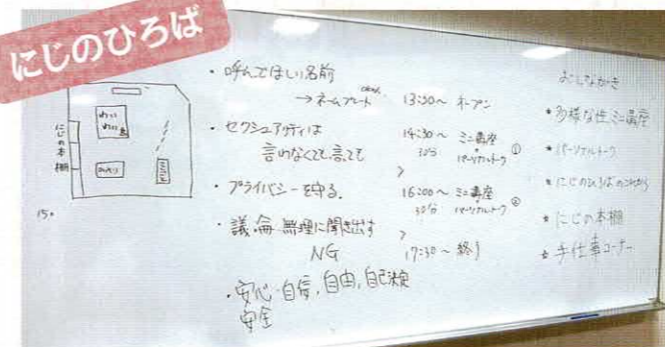 にじのひろば
にじの本棚
わいわい
・呼んでほしい名前
→ネームプレート
・セクシュアリティは
言わなくても、言っても
・プライバシーを守る。
・議論 無理に聞き出す
NG
・安心・自信、自由、自己決定
安全
13:30〜 オープン
14:30〜 ミニ講座 ①
30分 パーソナルトーク
16:00〜 ミニ講座 ②
30分 パーソナルトーク
17:30〜 終り
おしながき
★多様な性ミニ講座
★パーソナルトーク
★にじのひろばのこれから
★にじの本棚
★手仕事コーナー